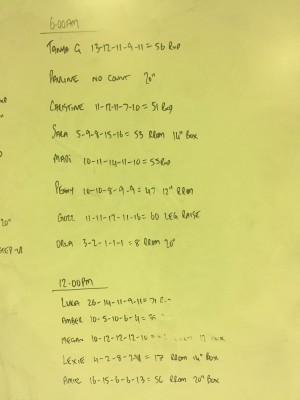 6:00AM
TANYA G 13-12-11-9-11 = 56 RXP
PAULINE NO COUNT 20"
CHRISTINE 11-12-11-7-10 = 51 RXP
SARA 5-9-8-15-16 = 53 RROM 14" BOX
MADI 10-11-14-11-10 = 55 RXP
PENNY 10-10-8-9-9 = 47 12" RROM
GUZZ 11-11-17-11-16 = 60 LEG RAISE
ORLA 3-2-1-1-1 = 8 RROM 20"
20"
STEP-UP
12:00PM
LUKA 26-14-11-9-11 = 71
AMBER 10-5-10-6-4 =
MEGAN 10-12-12-12-10 =
LEXIE 4-2-8-2-1 = 17 RROM 14" BOX
16-15-6-6-13 = 56 RROM 20" BOX